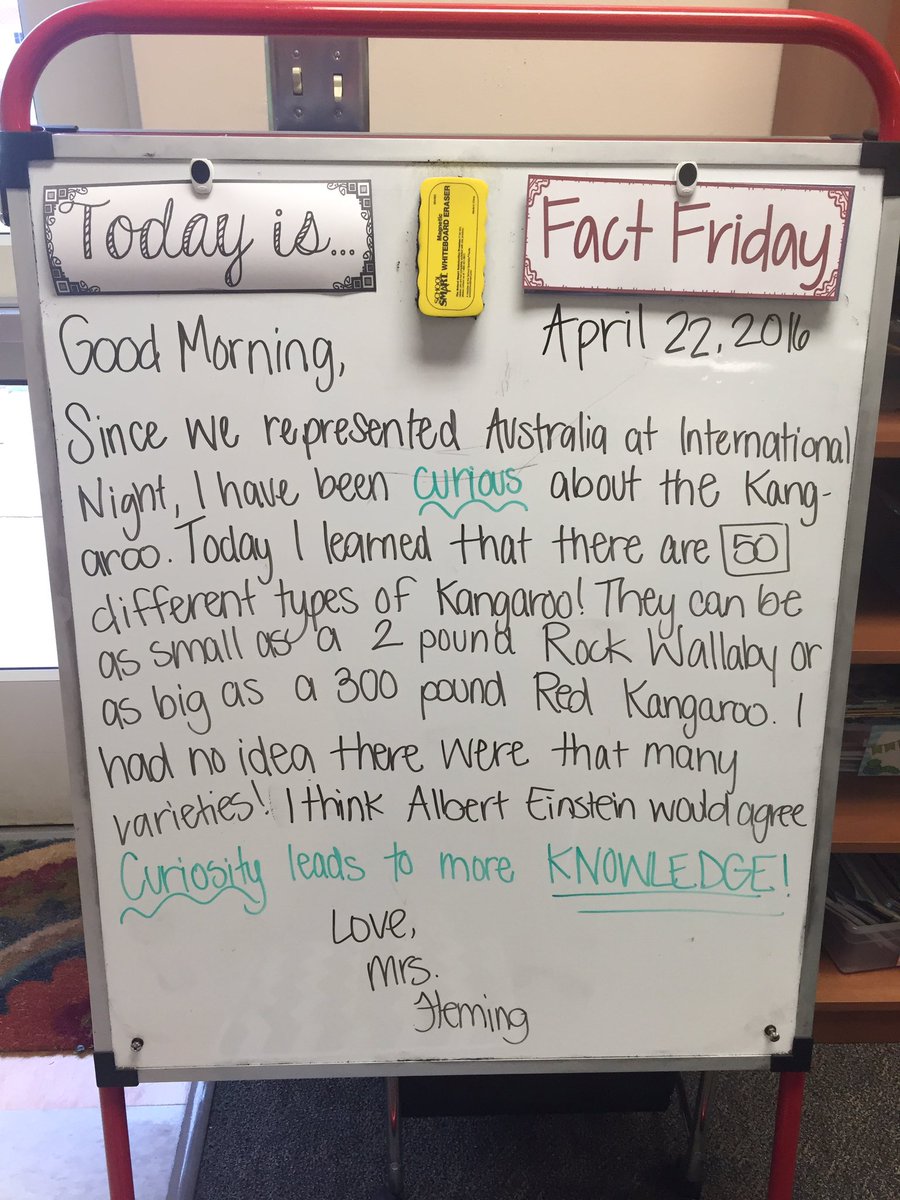 Today is...
Fact Friday
SCHOOL SMART
Magnetic
WHITEBOARD ERASER
Good Morning,
April 22, 2016
Since we represented Australia at International
Night, I have been curious about the Kang-
aroo. Today I learned that there are 50
different types of Kangaroo! They can be
as small as a 2 pound Rock Wallaby or
as big as a 300 pound Red Kangaroo. I
had no idea there were that many
varieties! I think Albert Einstein would agree
Curiosity leads to more KNOWLEDGE!
Love,
Mrs.
Fleming